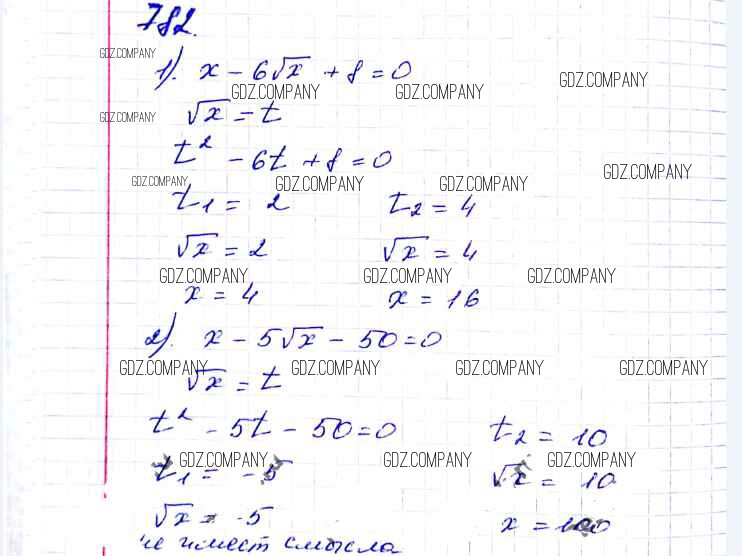 782.
GDZ.COMPANY
1). x - 6√x + 8 = 0
GDZ.COMPANY GDZ.COMPANY GDZ.COMPANY
GDZ.COMPANY √x = t
t² - 6t + 8 = 0
GDZ.COMPANY GDZ.COMPANY GDZ.COMPANY GDZ.COMPANY
t₁ = 2 t₂ = 4
√x = 2 √x = 4
GDZ.COMPANY GDZ.COMPANY GDZ.COMPANY
x = 4 x = 16
2). x - 5√x - 50 = 0
GDZ.COMPANY GDZ.COMPANY GDZ.COMPANY GDZ.COMPANY
√x = t
t² - 5t - 50 = 0 t₂ = 10
GDZ.COMPANY GDZ.COMPANY GDZ.COMPANY
t₁ = -5 √x = 10
√x = -5 x = 100
не имеет смысла